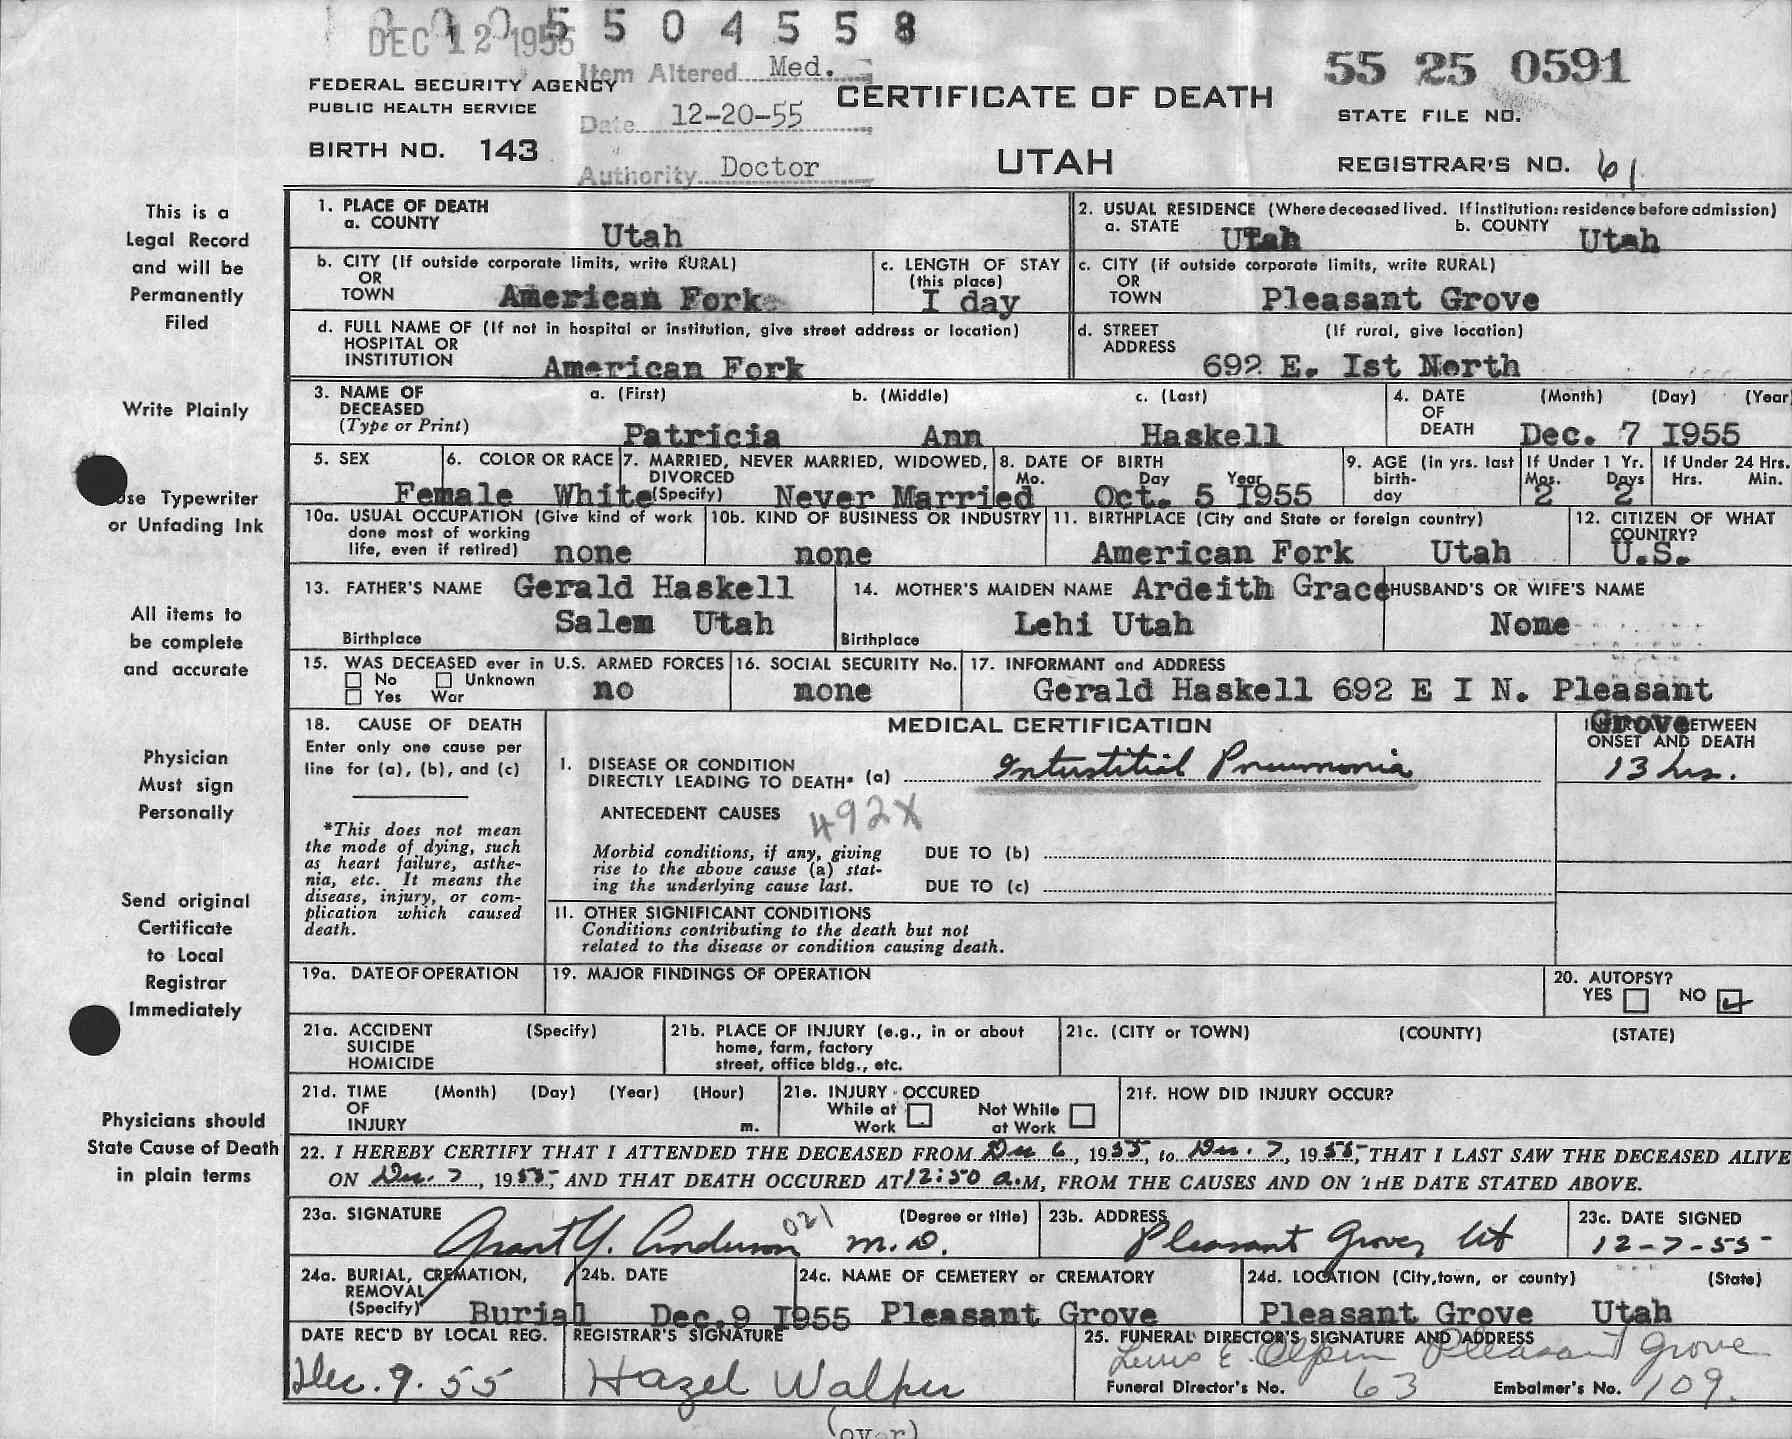 DEC 12 1955 5504558
Item Altered Med.
55 25 0591
FEDERAL SECURITY AGENCY
PUBLIC HEALTH SERVICE
CERTIFICATE OF DEATH
STATE FILE NO.
Date 12-20-55
BIRTH NO. 143
UTAH
REGISTRAR'S NO. 61
Authority Doctor
This is a
Legal Record
and will be
Permanently
Filed
Write Plainly
Use Typewriter
or Unfading Ink
All items to
be complete
and accurate
Physician
Must sign
Personally
Send original
Certificate
to Local
Registrar
Immediately
Physicians should
State Cause of Death
in plain terms
1. PLACE OF DEATH
a. COUNTY Utah
2. USUAL RESIDENCE (Where deceased lived. If institution: residence before admission)
a. STATE Utah b. COUNTY Utah
b. CITY (If outside corporate limits, write RURAL)
OR
TOWN American Fork
c. LENGTH OF STAY
(this place)
I day
c. CITY (if outside corporate limits, write RURAL)
OR
TOWN Pleasant Grove
d. FULL NAME OF (If not in hospital or institution, give street address or location)
HOSPITAL OR
INSTITUTION American Fork
d. STREET (If rural, give location)
ADDRESS
692 E. Ist North
3. NAME OF DECEASED (Type or Print)
a. (First) b. (Middle) c. (Last)
Patricia Ann Haskell
4. DATE OF DEATH (Month) (Day) (Year)
Dec. 7 I955
5. SEX
Female
6. COLOR OR RACE
White
7. MARRIED, NEVER MARRIED, WIDOWED,
DIVORCED
(Specify) Never Married
8. DATE OF BIRTH
Mo. Day Year
Oct. 5 I955
9. AGE (in yrs. last
birth-
day
If Under 1 Yr.
Mos. Days
2 2
If Under 24 Hrs.
Hrs. Min.
10a. USUAL OCCUPATION (Give kind of work
done most of working
life, even if retired) none
10b. KIND OF BUSINESS OR INDUSTRY
none
11. BIRTHPLACE (City and State or foreign country)
American Fork Utah
12. CITIZEN OF WHAT
COUNTRY?
U.S.
13. FATHER'S NAME Gerald Haskell
Birthplace Salem Utah
14. MOTHER'S MAIDEN NAME Ardeith Grace
Birthplace Lehi Utah
HUSBAND'S OR WIFE'S NAME
None
15. WAS DECEASED ever in U.S. ARMED FORCES
No Unknown
Yes War
no
16. SOCIAL SECURITY No.
none
17. INFORMANT and ADDRESS
Gerald Haskell 692 E I N. Pleasant
Grove
18. CAUSE OF DEATH
Enter only one cause per
line for (a), (b), and (c)
*This does not mean
the mode of dying, such
as heart failure, asthe-
nia, etc. It means the
disease, injury, or com-
plication which caused
death.
MEDICAL CERTIFICATION
INTERVAL BETWEEN
ONSET AND DEATH
I. DISEASE OR CONDITION
DIRECTLY LEADING TO DEATH* (a) Interstitial Pneumonia
13 hrs.
ANTECEDENT CAUSES 492X
Morbid conditions, if any, giving
rise to the above cause (a) stat-
ing the underlying cause last.
DUE TO (b)
DUE TO (c)
II. OTHER SIGNIFICANT CONDITIONS
Conditions contributing to the death but not
related to the disease or condition causing death.
19a. DATE OF OPERATION
19. MAJOR FINDINGS OF OPERATION
20. AUTOPSY?
YES NO
21a. ACCIDENT (Specify)
SUICIDE
HOMICIDE
21b. PLACE OF INJURY (e.g., in or about
home, farm, factory
street, office bldg., etc.
21c. (CITY or TOWN) (COUNTY) (STATE)
21d. TIME (Month) (Day) (Year) (Hour)
OF
INJURY m.
21e. INJURY OCCURED
While at Work Not While at Work
21f. HOW DID INJURY OCCUR?
22. I HEREBY CERTIFY THAT I ATTENDED THE DECEASED FROM Dec 6, 1955, to Dec. 7, 1955, THAT I LAST SAW THE DECEASED ALIVE
ON Dec. 7, 1955, AND THAT DEATH OCCURED AT 12:50 a.M, FROM THE CAUSES AND ON THE DATE STATED ABOVE.
23a. SIGNATURE (Degree or title)
Grant Y. Anderson 021 M.D.
23b. ADDRESS
Pleasant Grove, Ut
23c. DATE SIGNED
12-7-55
24a. BURIAL, CREMATION,
REMOVAL
(Specify) Burial
24b. DATE
Dec. 9 I955
24c. NAME OF CEMETERY or CREMATORY
Pleasant Grove
24d. LOCATION (City, town, or county) (State)
Pleasant Grove Utah
DATE REC'D BY LOCAL REG.
Dec. 9. 55
REGISTRAR'S SIGNATURE
Hazel Walker
25. FUNERAL DIRECTOR'S SIGNATURE AND ADDRESS
E. Olpin Pleasant Grove
Funeral Director's No. 63 Embalmer's No. 109.
(over)